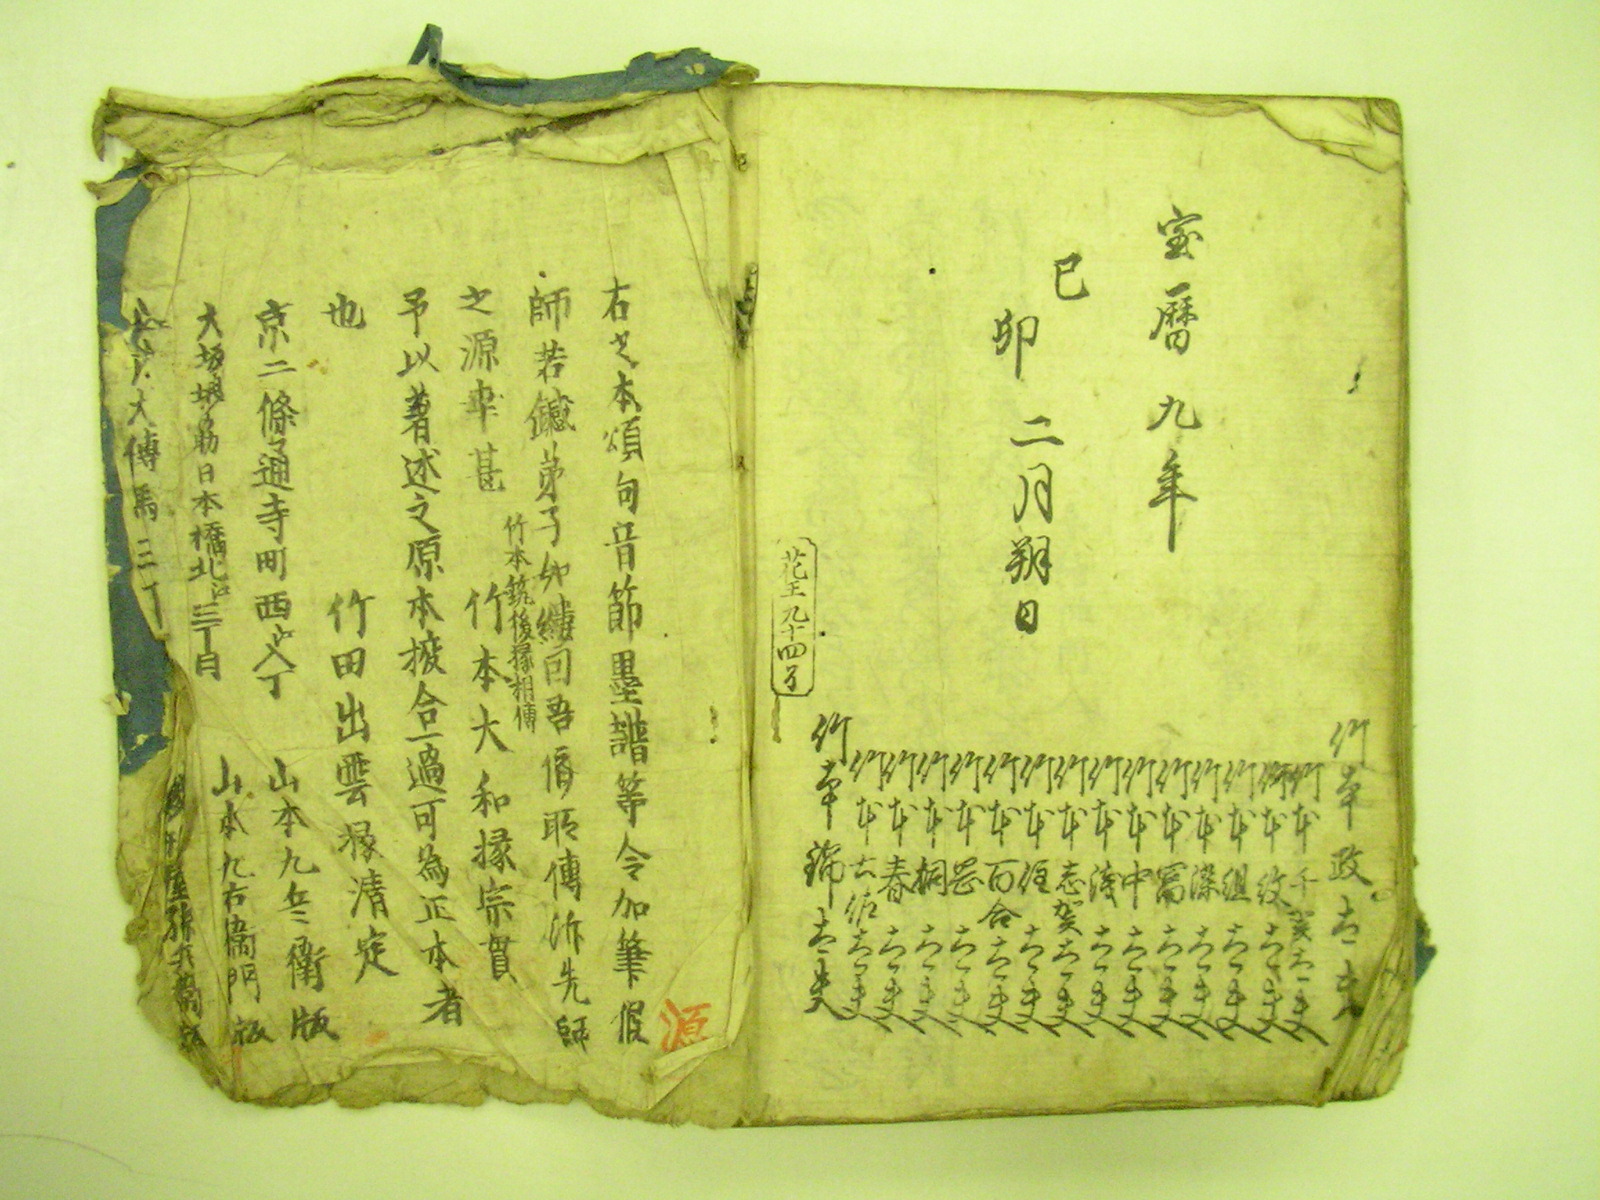 宝暦九年
己
卯
二月朔日
竹本政太夫
竹本千賀太夫
竹本紋太夫
竹本組太夫
竹本染太夫
竹本冨太夫
竹本中太夫
竹本浅太夫
竹本志賀太夫
竹本侄太夫
竹本百合太夫
竹本岡太夫
竹本桐太夫
竹本春太夫
竹本土佐太夫
竹本錦太夫
花王九十四号
源
右之本頌句音節墨譜等令加筆候
師若鍼弟子如縷因吾儕所傳泝先師
之源幸甚
竹本筑後掾相傳
竹本大和掾宗貫
予以著述之原本校合一過可為正本者
也
竹田出雲掾清定
京二條通寺町西へ入丁
山本九兵衛版
大坂堺筋日本橋北江三丁目
山本九右衛門版
大傳馬三丁